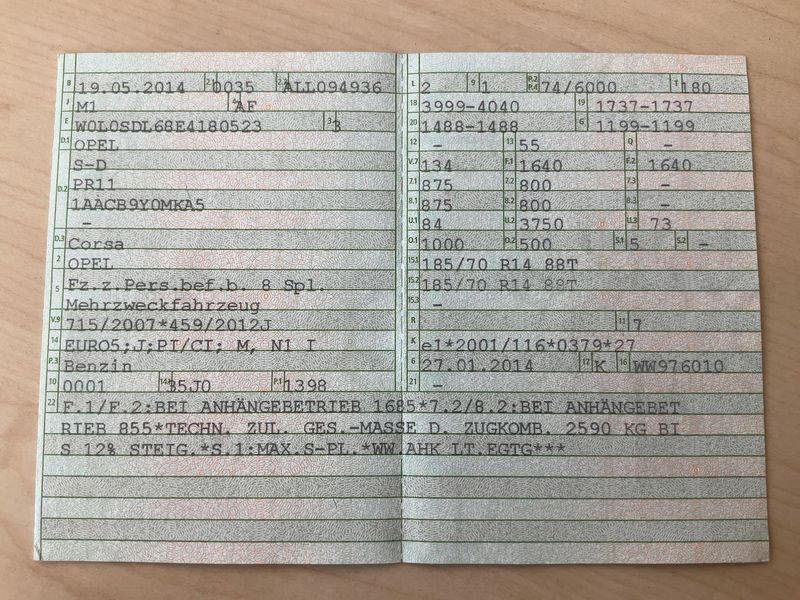 B 19.05.2014 2.1 0035 2.2 ALL094936
J M1 4 AF
E W0L0SDL68E4180523 3 3
D.1 OPEL
S-D
D.2 PR11
1AACB9Y0MKA5
-
D.3 Corsa
2 OPEL
5 Fz.z.Pers.bef.b. 8 Spl.
Mehrzweckfahrzeug
V.9 715/2007*459/2012J
14 EURO5;J;PI/CI; M, N1 I
P.3 Benzin
10 0001 14.1 35J0 P.1 1398
L 2 9 1 P.2 P.4 74/6000 T 180
18 3999-4040 19 1737-1737
20 1488-1488 G 1199-1199
12 - 13 55 Q -
V.7 134 F.1 1640 F.2 1640
7.1 875 7.2 800 7.3 -
8.1 875 8.2 800 8.3 -
U.1 84 U.2 3750 U.3 73
O.1 1000 O.2 500 S.1 5 S.2 -
15.1 185/70 R14 88T
15.2 185/70 R14 88T
15.3 -
R 11 7
K e1*2001/116*0379*27
6 27.01.2014 17 K 16 WW976010
21 -
22 F.1/F.2:BEI ANHÄNGEBETRIEB 1685*7.2/8.2:BEI ANHÄNGEBET
RIEB 855*TECHN. ZUL. GES.-MASSE D. ZUGKOMB. 2590 KG BI
S 12% STEIG.*S.1:MAX.S-PL.*WW.AHK LT.EGTG***